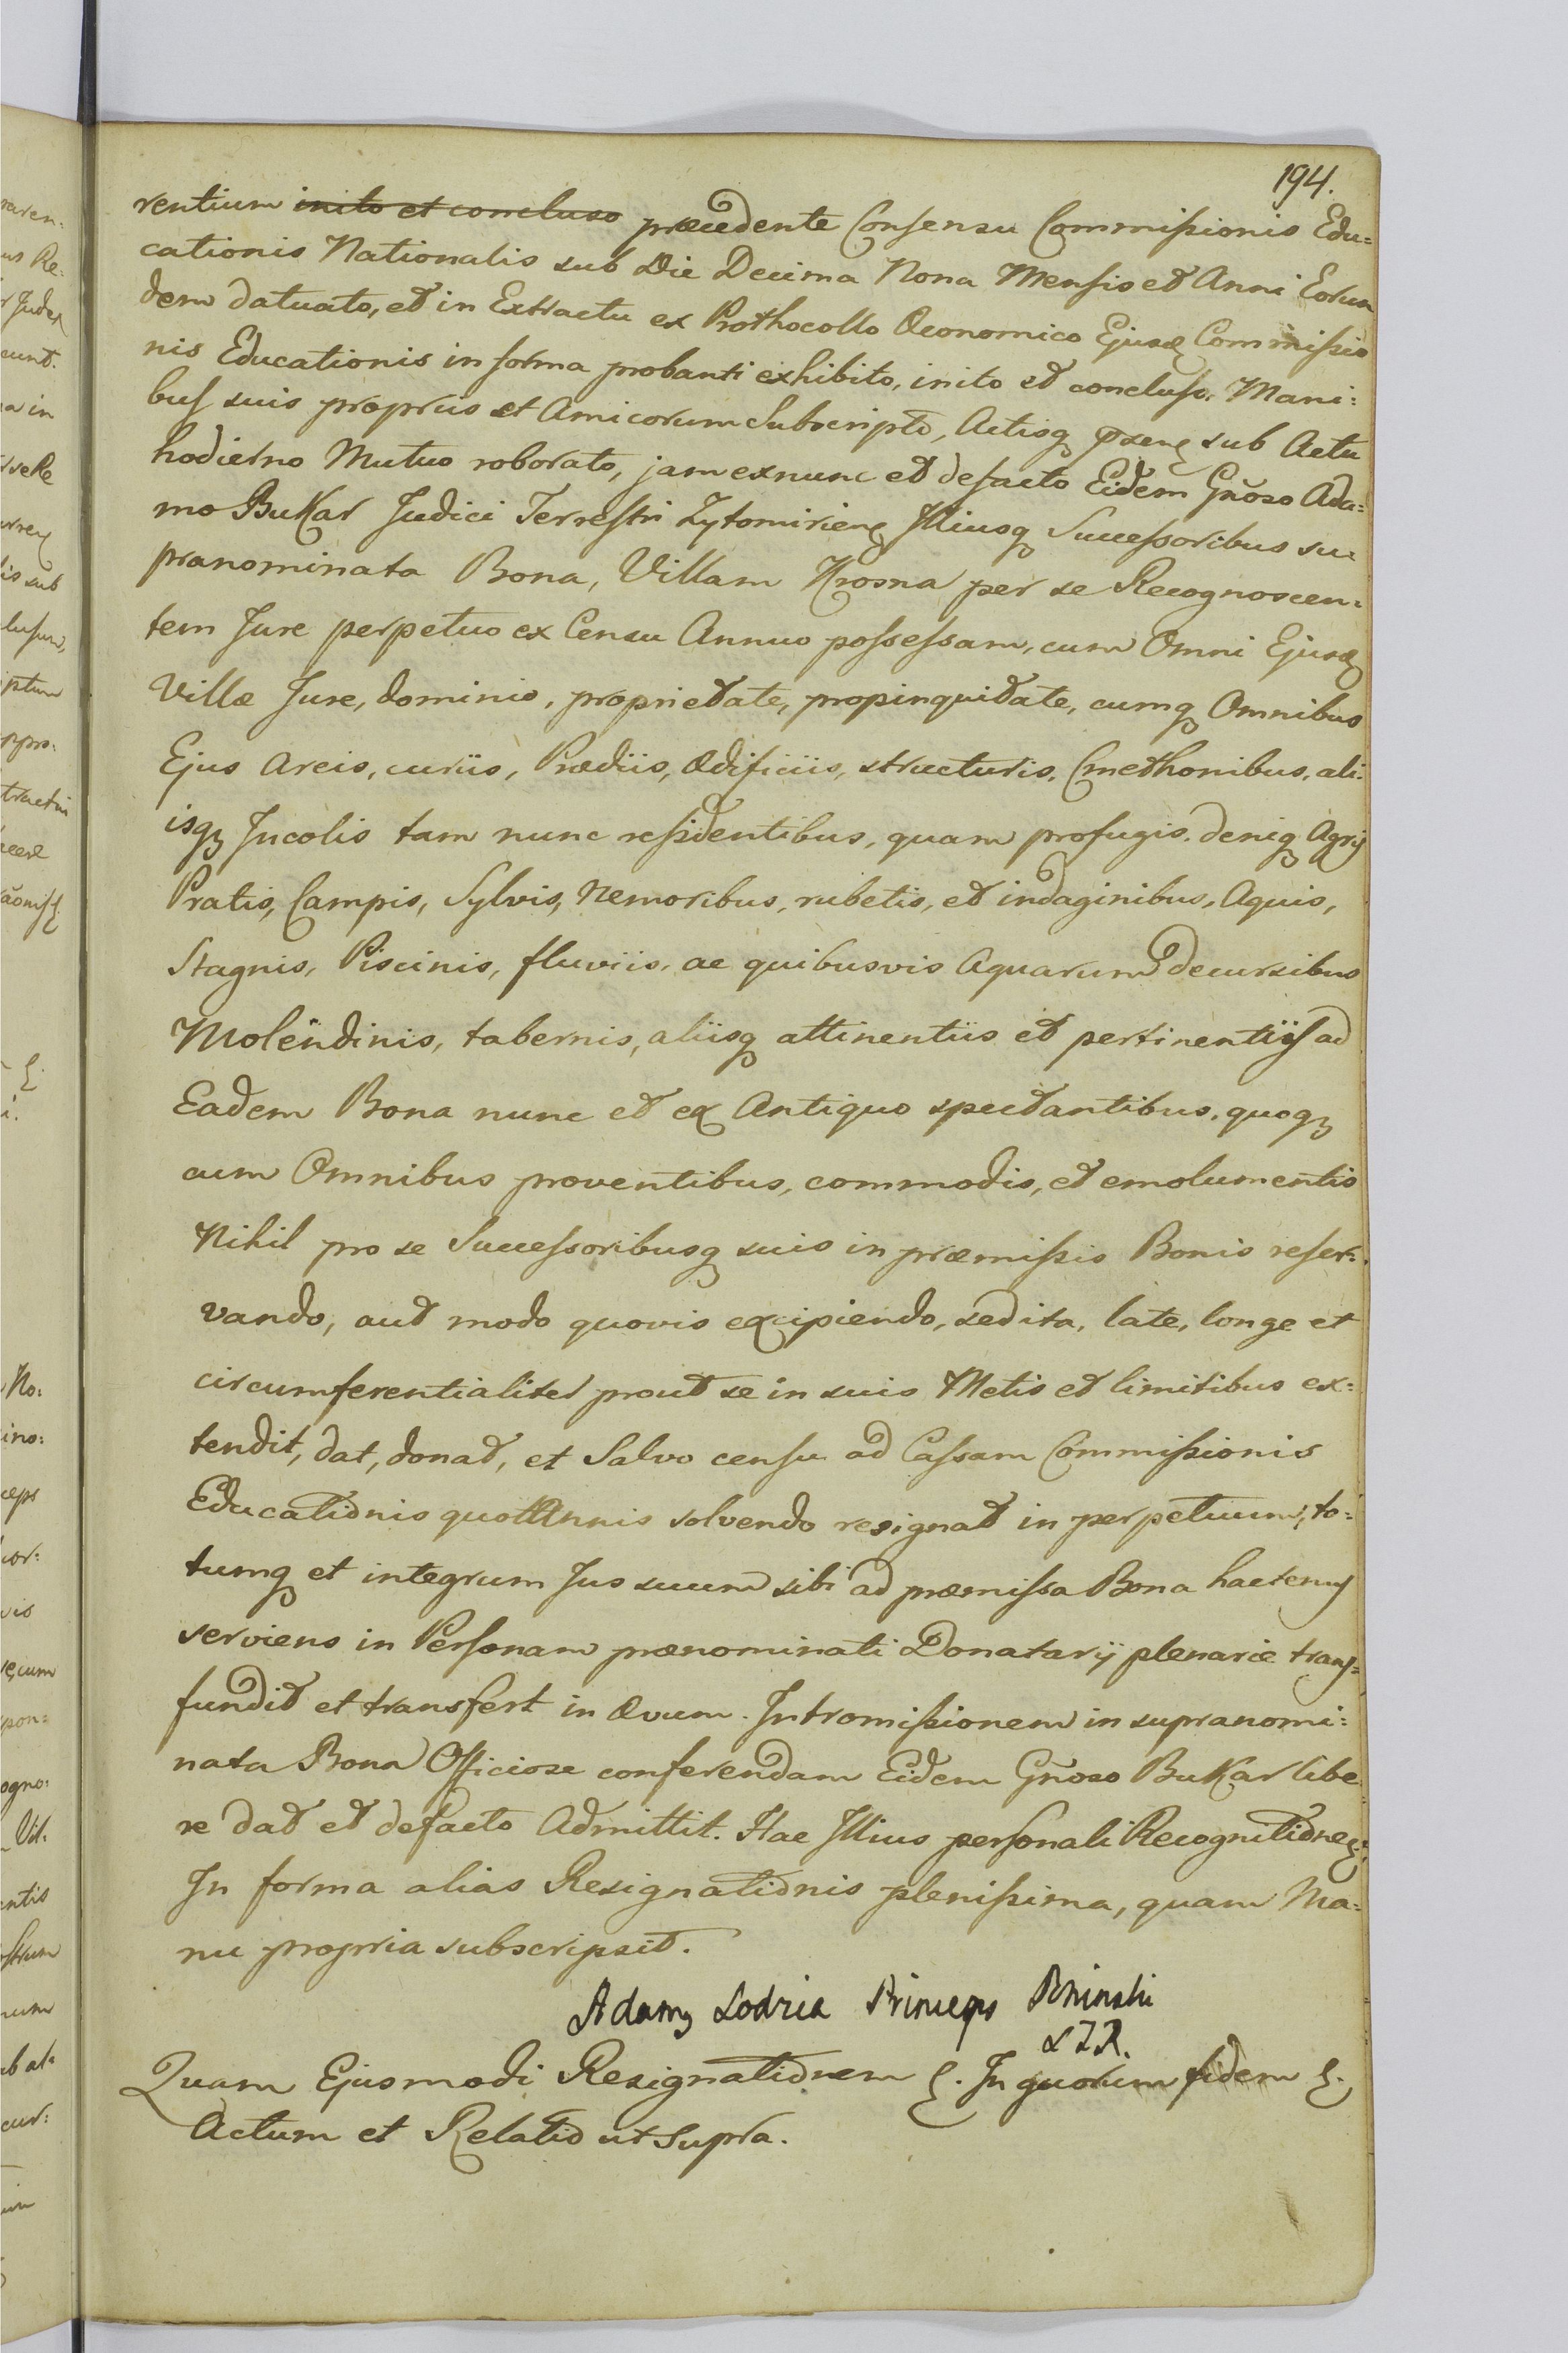 194.
rentium inito et concluso præcedente Consensu Commissionis Edu=
cationis Nationalis sub Die Decima Nona Mensis et Anni Eorun
dem datuato, et in Extractu ex Prothocollo Œconomico Ejusd Commissio
nis Educationis in forma probanti exhibito, inito et concluso, Mani=
bus suis propriis et Amicorum Subscripto, Actisq præsenq sub Actu
hodierno Mutuo roborato, jam exnunc et defacto Eidem Gñoso Ada=
mo Bukar Judici Terrestri Zytomirienq Illiusq Successoribus su
pranominata Bona, Villam Krosna per se Recognoscen=
tem Jure perpetuo ex Censu Annuo possessam, cum Omni Ejusd
Villæ Jure, dominio, proprietate, propinquitate, cumq Omnibus
Ejus Areis, curiis, Prædiis, Ædificiis, structuris, Cmethonibus, ali=
isq Incolis tam nunc residentibus, quam profugis, deniq Agris
Pratis, Campis, Sylvis, Nemoribus, rubetis, et indaginibus, Aquis,
Stagnis, Piscinis, fluviis, ac quibusvis Aquarum decursibus
Molendinis, tabernis, aliisq attinentiis et pertinentiis ad
Eadem Bona nunc et ex Antiquo spectantibus, quoq
cum Omnibus proventibus, commodis, et emolumentis
Nihil pro se Successoribusq suis in præmissis Bonis reser=
vando, aut modo quovis excipiendo, sed ita, late, longe et
circumferentialiter prout se in suis Metis et limitibus ex=
tendit, dat, donat, et Salvo censu ad Cassam Commissionis
Educationis quottAnnis solvendo resignat in perpetuum, to=
tumq et integrum Jus suum sibi ad præmissa Bona hactenus
serviens in Personam prænominati Donatarij plenarie trans=
fundit et transfert in Ævum. Intromissionem in supranomi=
nata Bona Officiose conferendam Eidem Gñoso Bukar libe
re dat et defacto Admittit. Hac Illius personali Recognitione
In forma alias Resignationis plenissima, quam Ma=
nu propria subscripsit.
Adamq Lodzia Princeps Poninski
Quam Ejusmodi Resignationem &. In quorum fidem &.
Actum et Relatio ut supra.